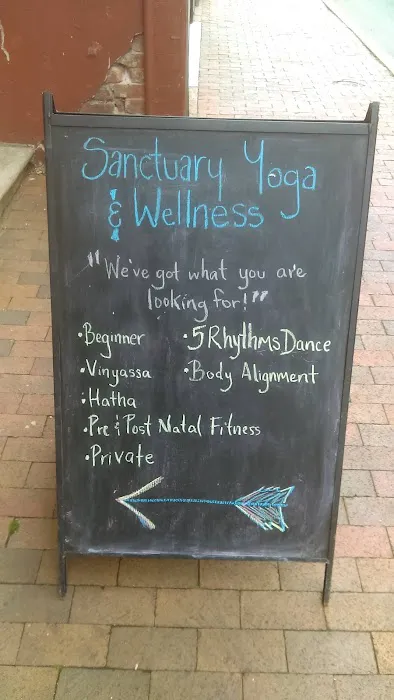 Sanctuary Yoga
& Wellness
"We've got what you are
looking for!"
·Beginner
·Vinyassa
·Hatha
·Pre & Post Natal Fitness
·Private
·5RhythmsDance
·Body Alignment